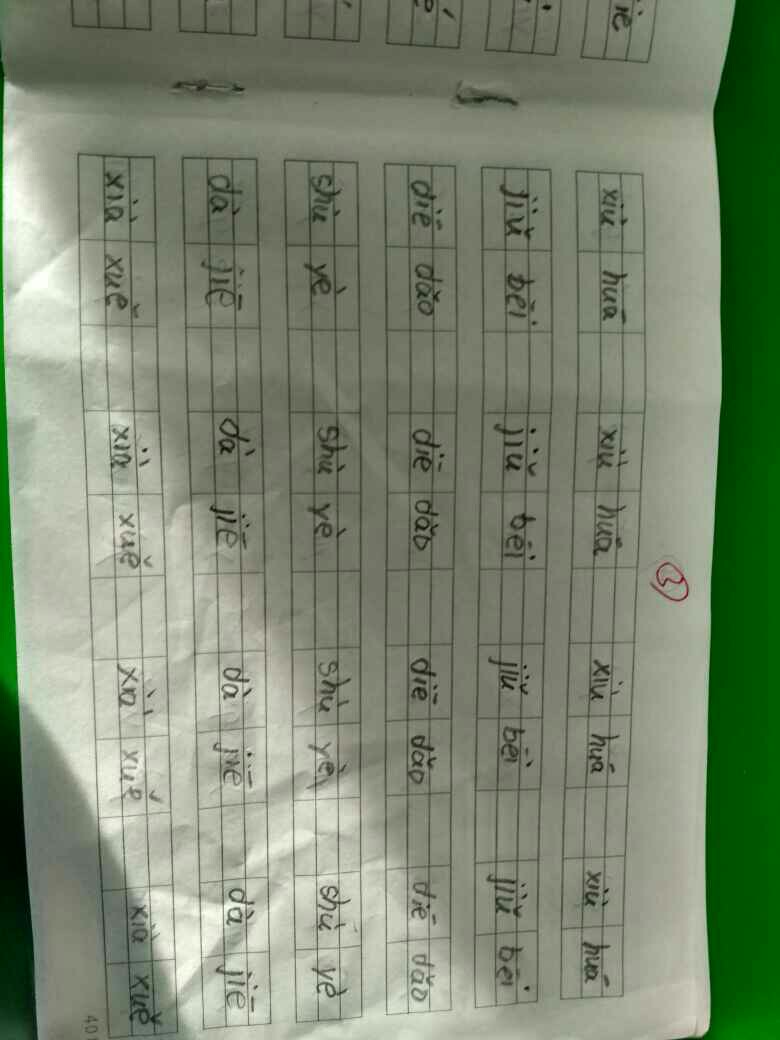 ③
xiù huā xiù huā xiù huā xiù huā
jiǔ bēi jiǔ bēi jiǔ bēi jiǔ bēi
diē dǎo diē dǎo diē dǎo diē dǎo
shù yè shù yè shù yè shù yè
dà jiē dà jiē dà jiē dà jiē
xià xuě xià xuě xià xuě xià xuě